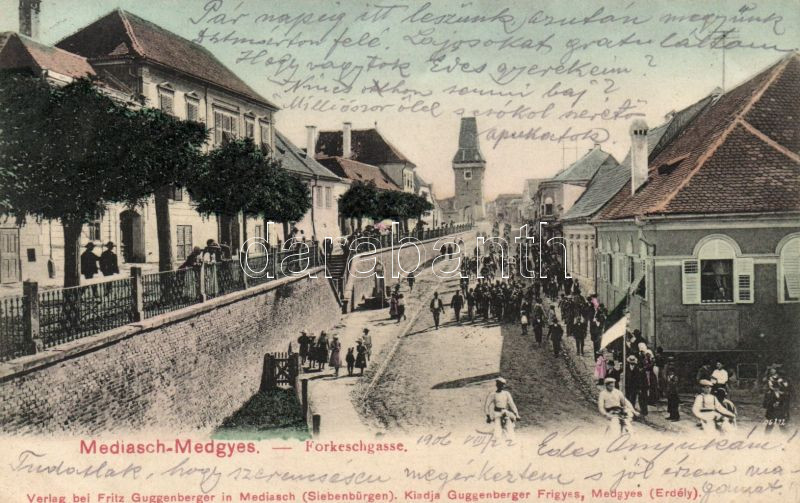 Pár napig itt leszünk azután megyünk
felé. Lajosokat gratuláltam
Hogy vagytok Édes gyerekeim?
Nincs otthon semmi baj?
Milliószor ölel csókol szerető
apukátok
darabanth
Mediasch-Medgyes. — Forkeschgasse.
1906 VIII/22
Édes Anyukám!
Tudatlak, hogy szerencsésen megérkeztem s jól érzem ma-
gamat.
Verlag bei Fritz Guggenberger in Mediasch (Siebenbürgen). Kiadja Guggenberger Frigyes, Medgyes (Erdély).